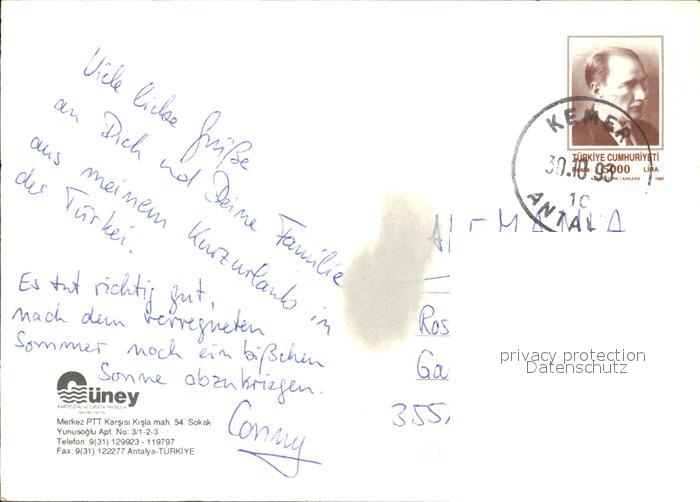 Viele liebe Grüße
an Dich und Deine Familie
aus meinem Kurzurlaub in
der Türkei.
Es tut richtig gut,
nach dem verregneten
Sommer noch ein bißchen
Sonne abzukriegen.
Conny
Güney
KARTPOSTAL ve TURİSTİK YAYINCILIK
Merkez PTT Karşısı Kışla mah. 54. Sokak
Yunusoğlu Apt. No: 3/1-2-3
Telefon: 9(31) 129923 - 119797
Fax: 9(31) 122277 Antalya-TÜRKİYE
TÜRKİYE CUMHURİYETİ
5000 LİRA
KEMER
30.10.93
10
ANTAL
ALEMANIA
Ros
Ga
355
privacy protection
Datenschutz